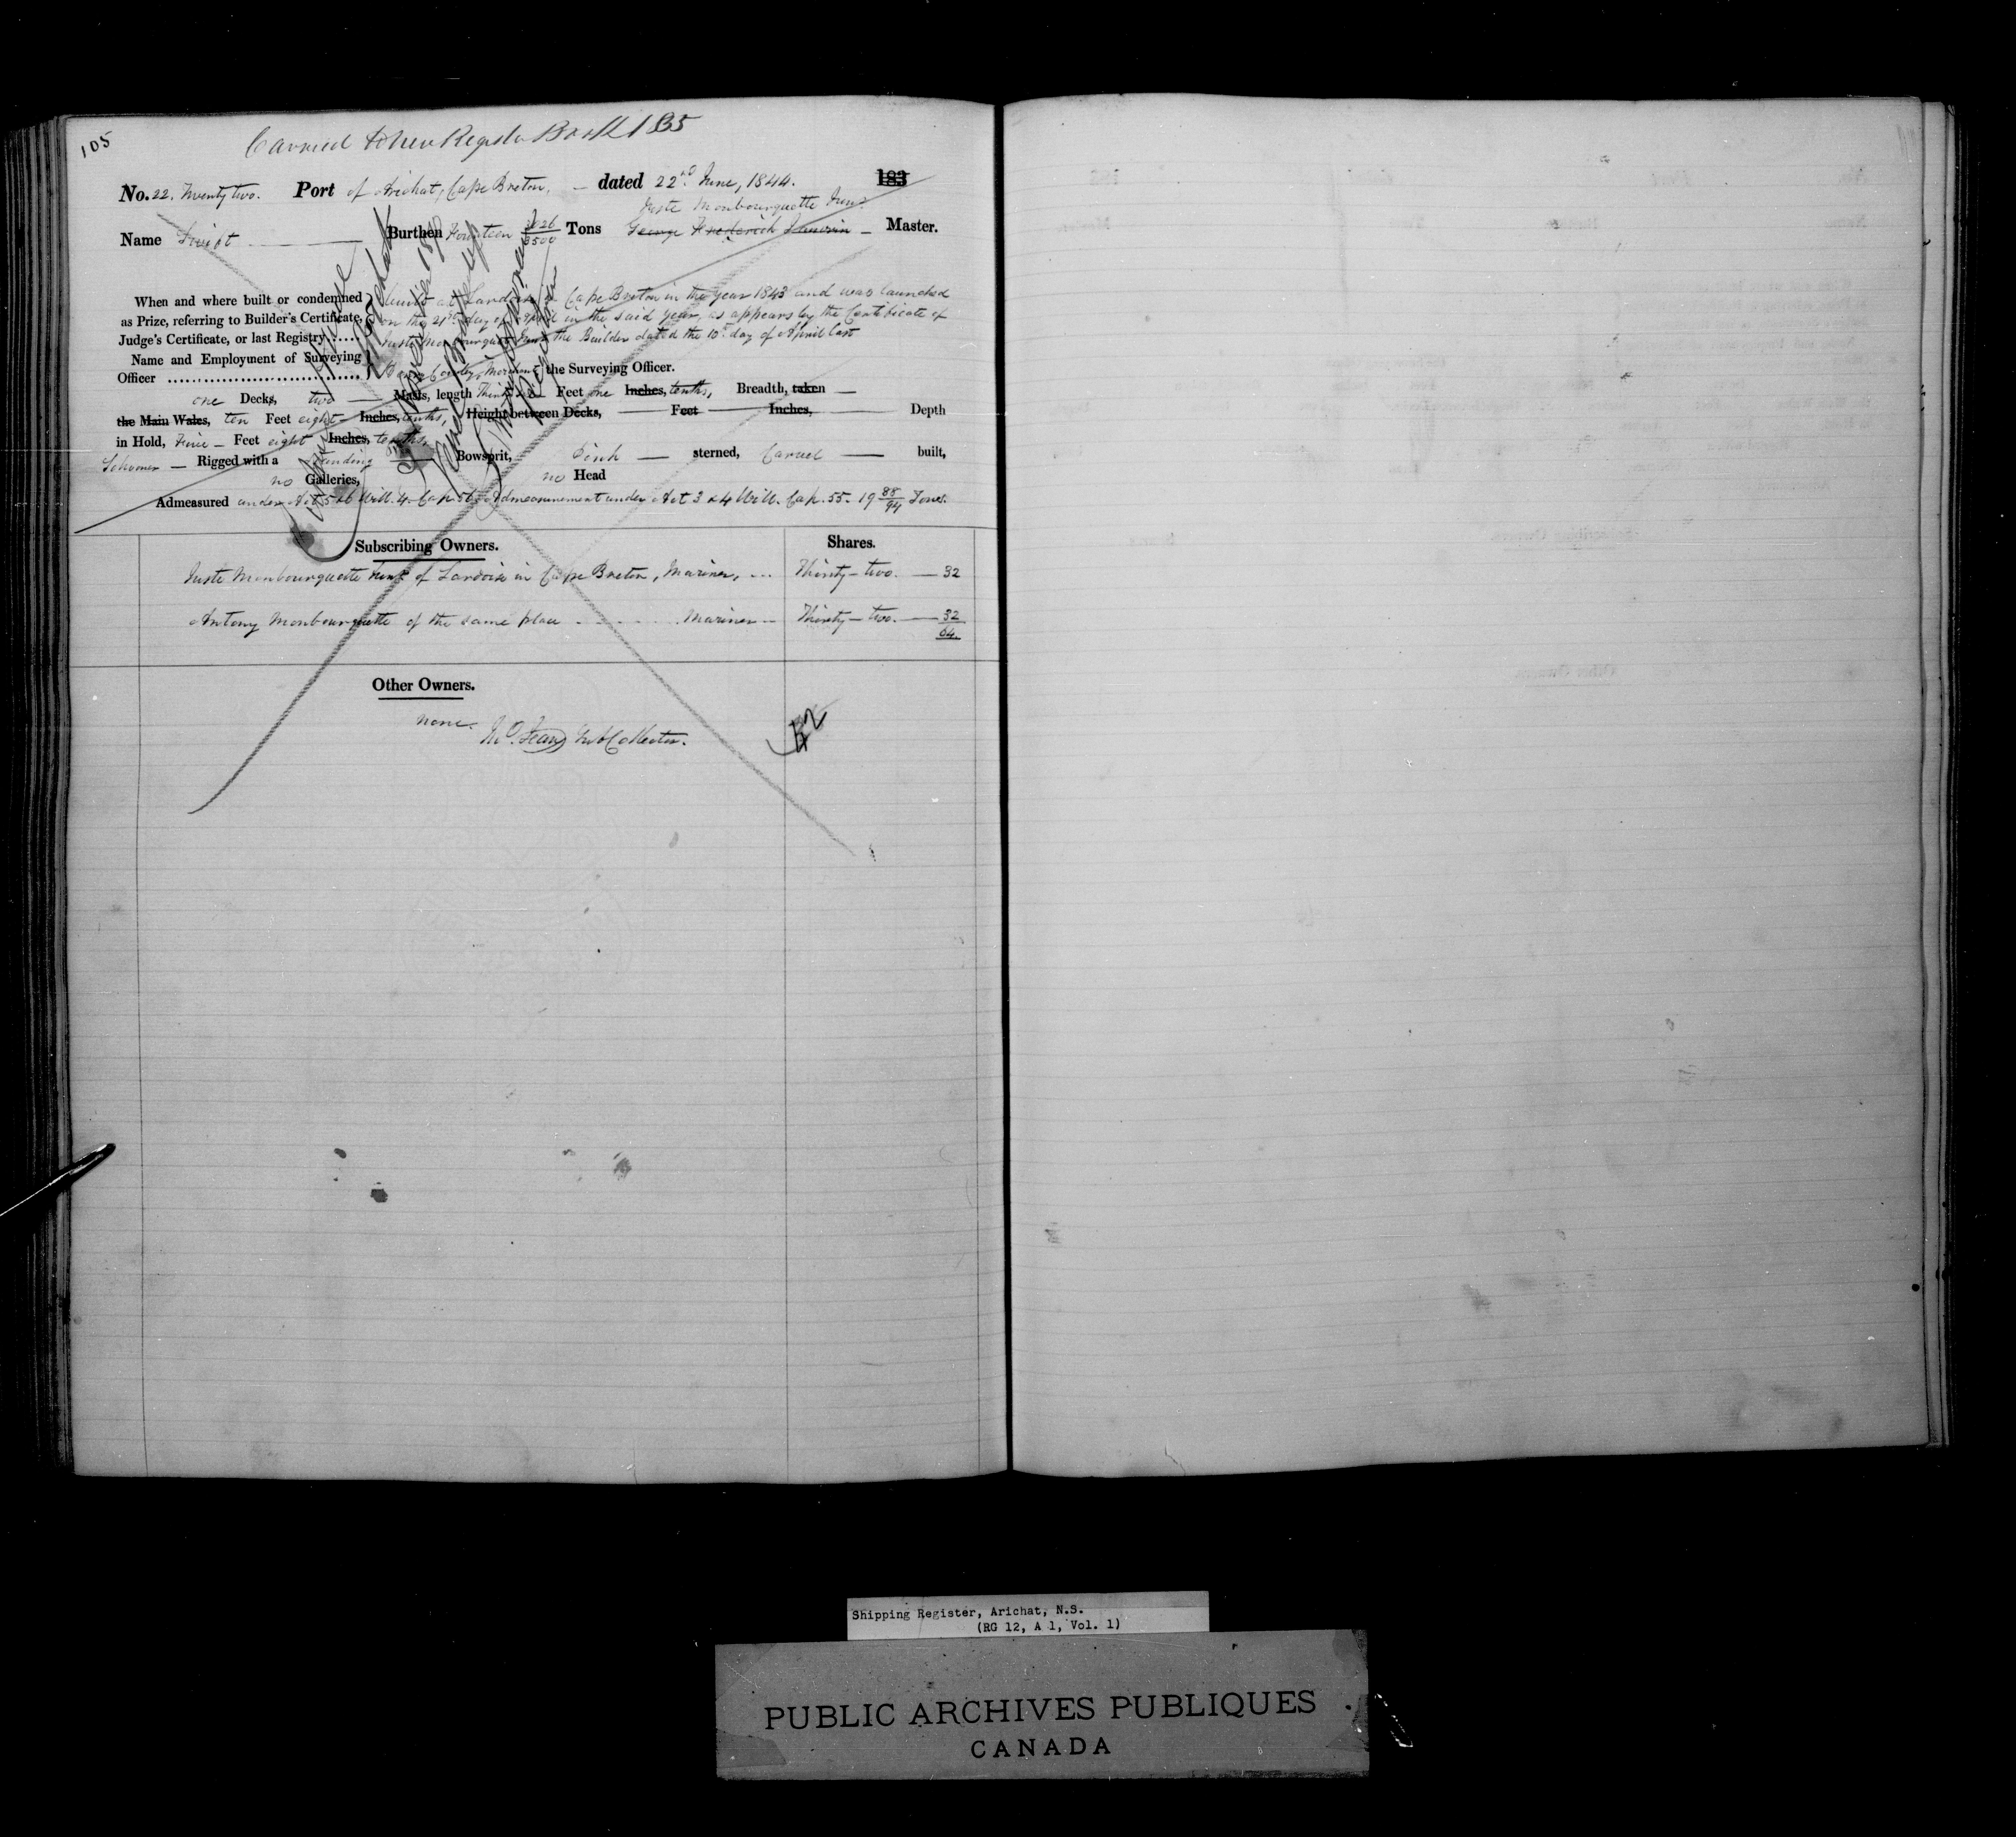 105
Carried to New Register Book 1 B5
No. 22. Twenty two. Port of Arichat, Cape Breton, — dated 22nd June, 1844. 183
Juste Monbourquette Junr.
Name Swift Burthen Fourteen 2026/3500 Tons George Frederick — Master.
When and where built or condemned as Prize, referring to Builder's Certificate, Judge's Certificate, or last Registry .....
built at Lardoise in Cape Breton in the year 1843 and was launched
on the 21st day of April in the said year, as appears by the Certificate of
Juste Monbourquette Junr. the Builder dated the 10th day of April last
Name and Employment of Surveying
Officer the Surveying Officer.
one Decks, two — Masts, length Feet one Inches, tenths, Breadth, taken —
the Main Wales, ten Feet eight Inches, tenths, Height between Decks, — Feet — Inches, — Depth
in Hold, Five — Feet eight Inches, tenths,
Schooner — Rigged with a Standing Bowsprit, Pink — sterned, Carvel — built,
no Galleries, no Head
Admeasured under Act 5 & 6 Will. 4. Cap. 56. Admeasurement under Act 3 & 4 Will. Cap. 55. 19 88/94 Tons.
Subscribing Owners. Shares.
Juste Monbourquette Junr. of Lardoise in Cape Breton, Mariner, ... Thirty-two. — 32
Antony Monbourquette of the same place ..... Mariner — Thirty-two. — 32
64.
Other Owners.
none.
Fean Sub Collector.
Shipping Register, Arichat, N.S.
(RG 12, A 1, Vol. 1)
PUBLIC ARCHIVES PUBLIQUES
CANADA